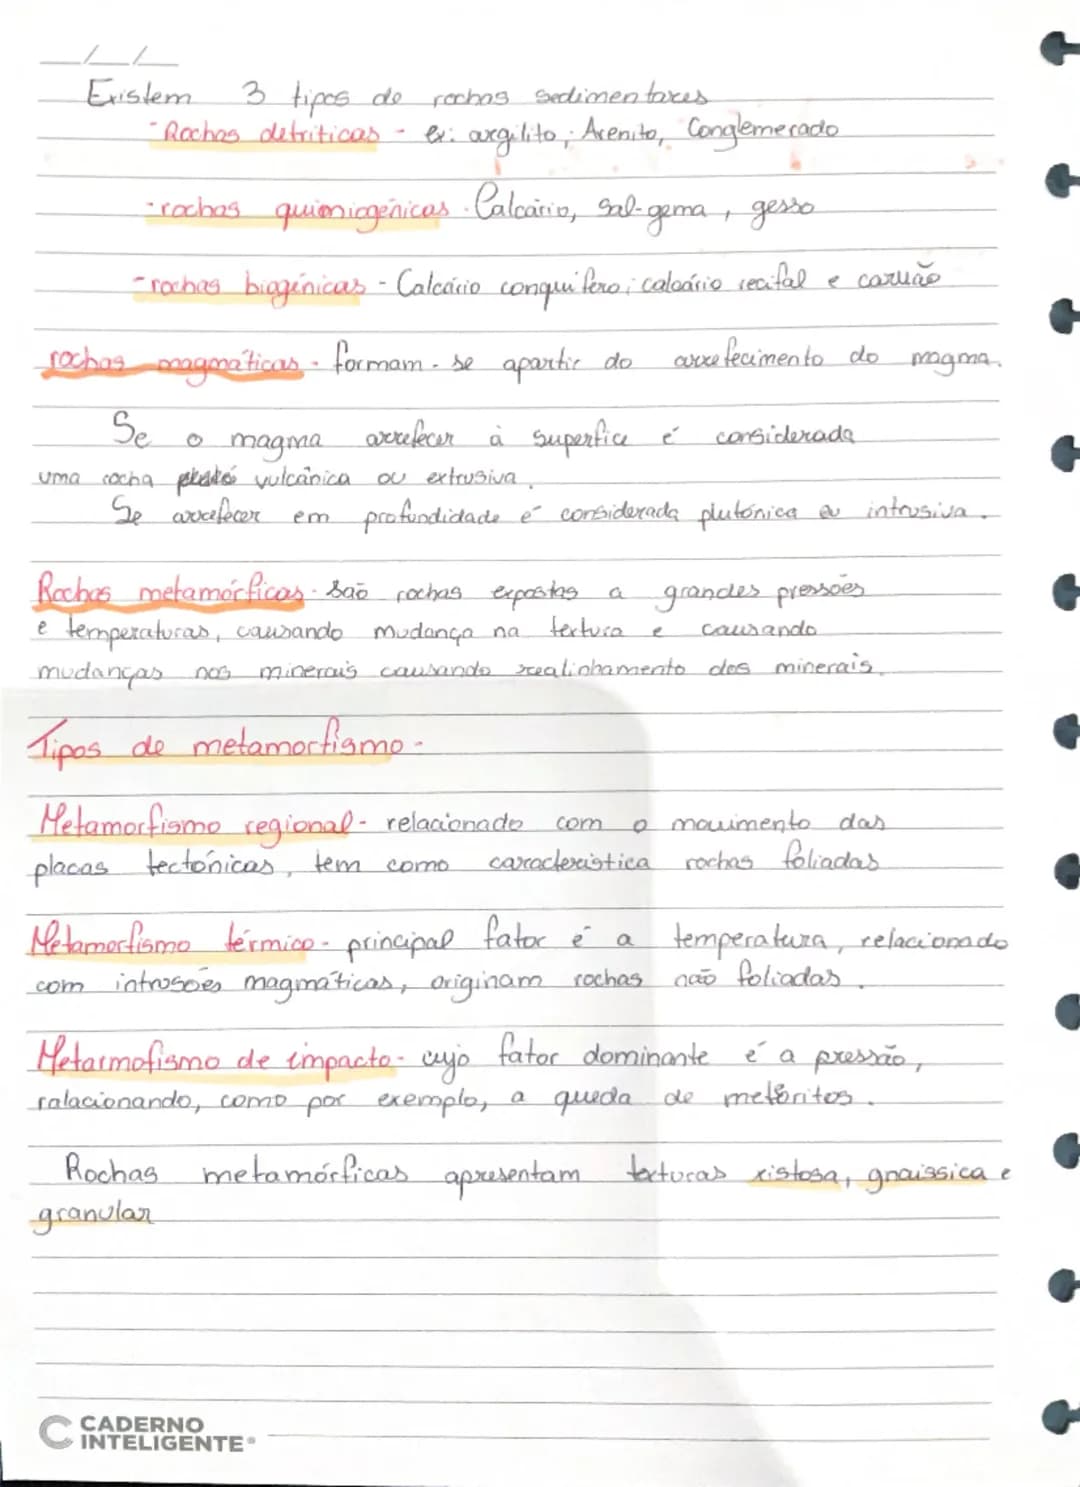 __/__/__
Existem 3 tipos de rochas sedimentares
- Rochas detríticas - ex: argilito; Arenito, Conglemerado
- rochas quimiogénicas - Calcário, Sal-gema, gesso
- rochas biogénicas - Calcário conquífero; calcário recifal e carvão
rochas magmáticas - formam-se apartir do arrefecimento do magma.
Se o magma arrefecer à superfice é considerada
uma rocha vulcânica ou extrusiva.
Se arrefecer em profundidade é considerada plutónica ou intrusiva.
Rochas metamórficas - São rochas expostas a grandes pressões
e temperaturas, causando mudança na textura e causando
mudanças nos minerais causando realinhamento dos minerais.
Tipos de metamorfismo -
Metamorfismo regional - relacionado com o movimento das
placas tectónicas, tem como característica rochas foliadas
Metamorfismo térmico - principal fator é a temperatura, relacionado
com intrusões magmáticas, originam rochas não foliadas.
Metarmofismo de impacto - cujo fator dominante é a pressão,
ralacionando, como por exemplo, a queda de meteóritos.
Rochas metamórficas apresentam texturas xistosa, gnaissica e
granular
CADERNO
INTELIGENTE®